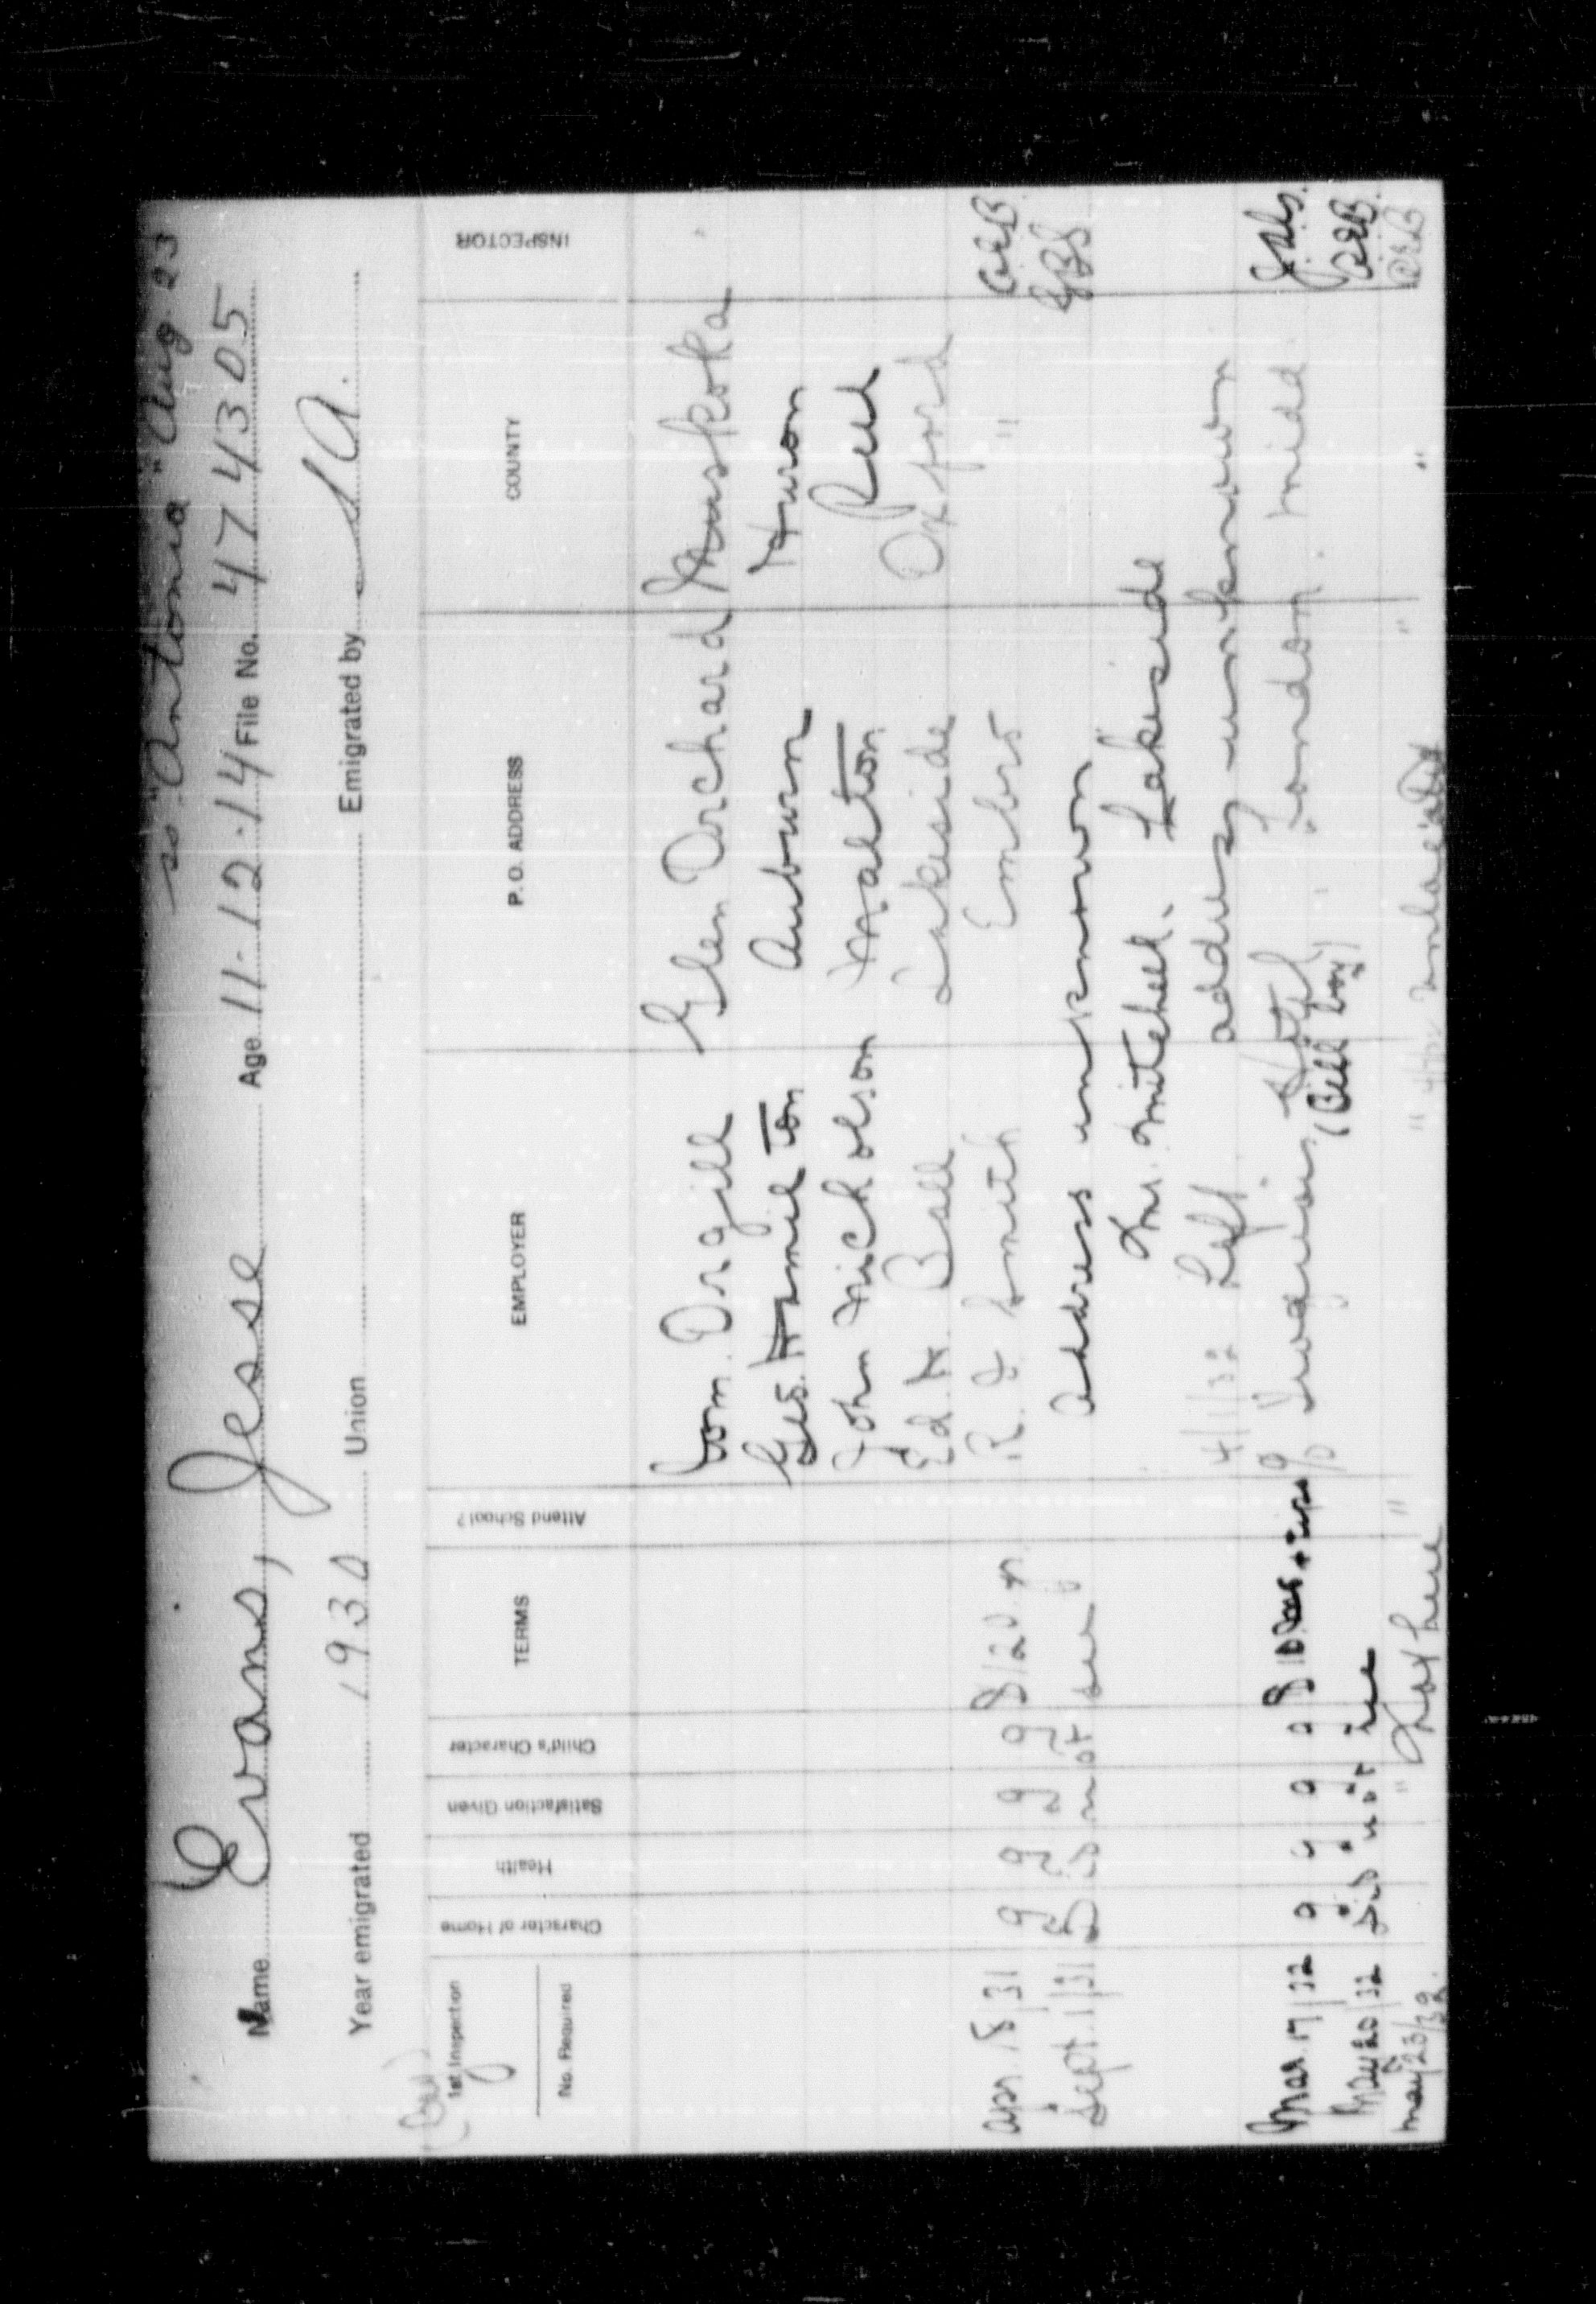 ss "Antonia" Aug 23
Name Evans, Jesse Age 11-12-14 File No. 474305
Year emigrated 1930 Union Emigrated by S A.
1st Inspection
No. Required
Character of Home Health Satisfaction Given Child's Character TERMS Attend School? EMPLOYER P. O. ADDRESS COUNTY INSPECTOR
Wm. Orgill Glen Orchard Muskoka
Geo. Hamilton Auburn Huron
John Nicholson Malton Peel
Ed. H Ball Lakeside Oxford
Apr 18/31 g g g g $120 yr R. J Smith Embro " 
Sept 1/31 Did not see Address unknown
Mr. Mitchell. Lakeside
4/1/32 Left address unknown
Mar 17/32 g g g g $10 + tips % Iroquois Hotel, London. Midd.
(Bell boy)
May 20/32 Did not see
May 23/32 " Not here " " "